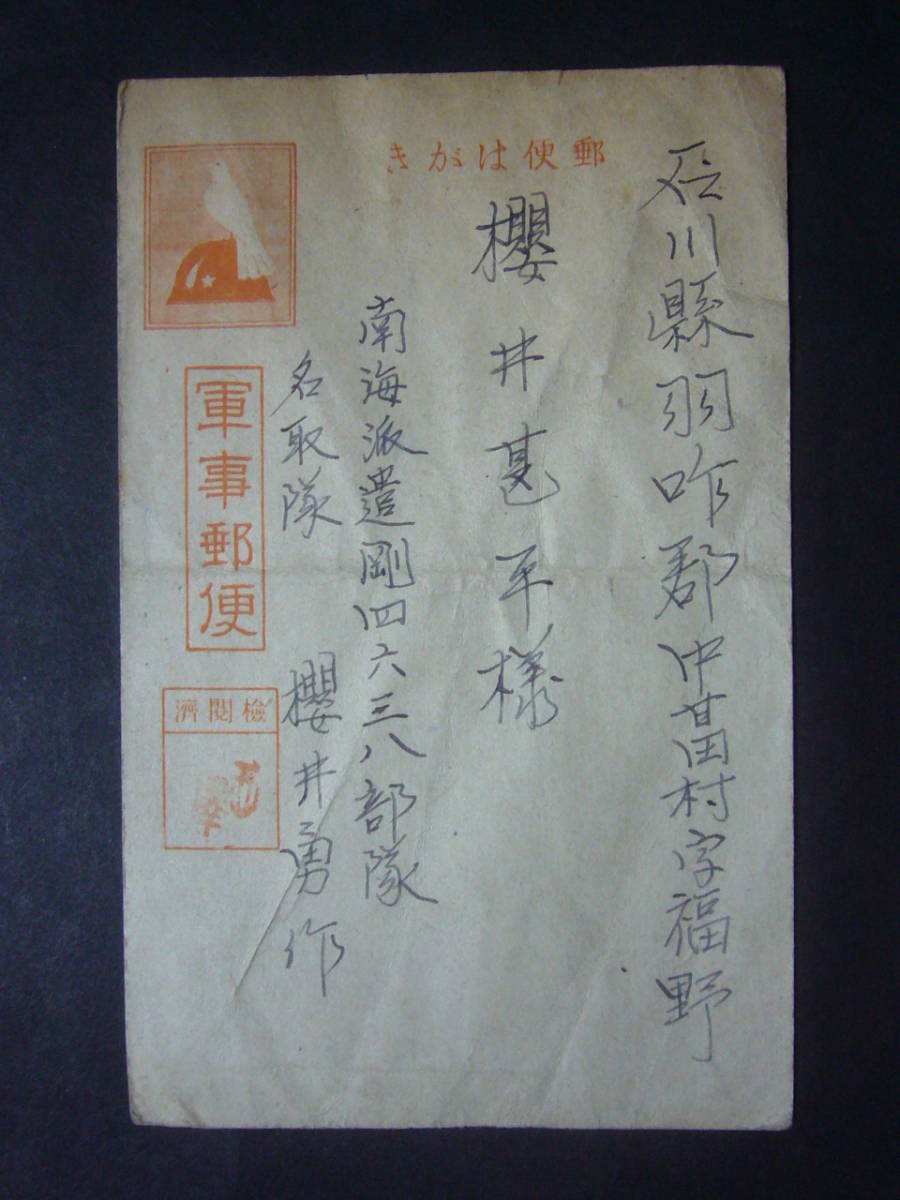 郵便はがき
石川縣羽咋郡中甘田村字福野
櫻井甚平様
南海派遣剛四六三八部隊
名取隊 櫻井勇作
軍事郵便
檢閲濟